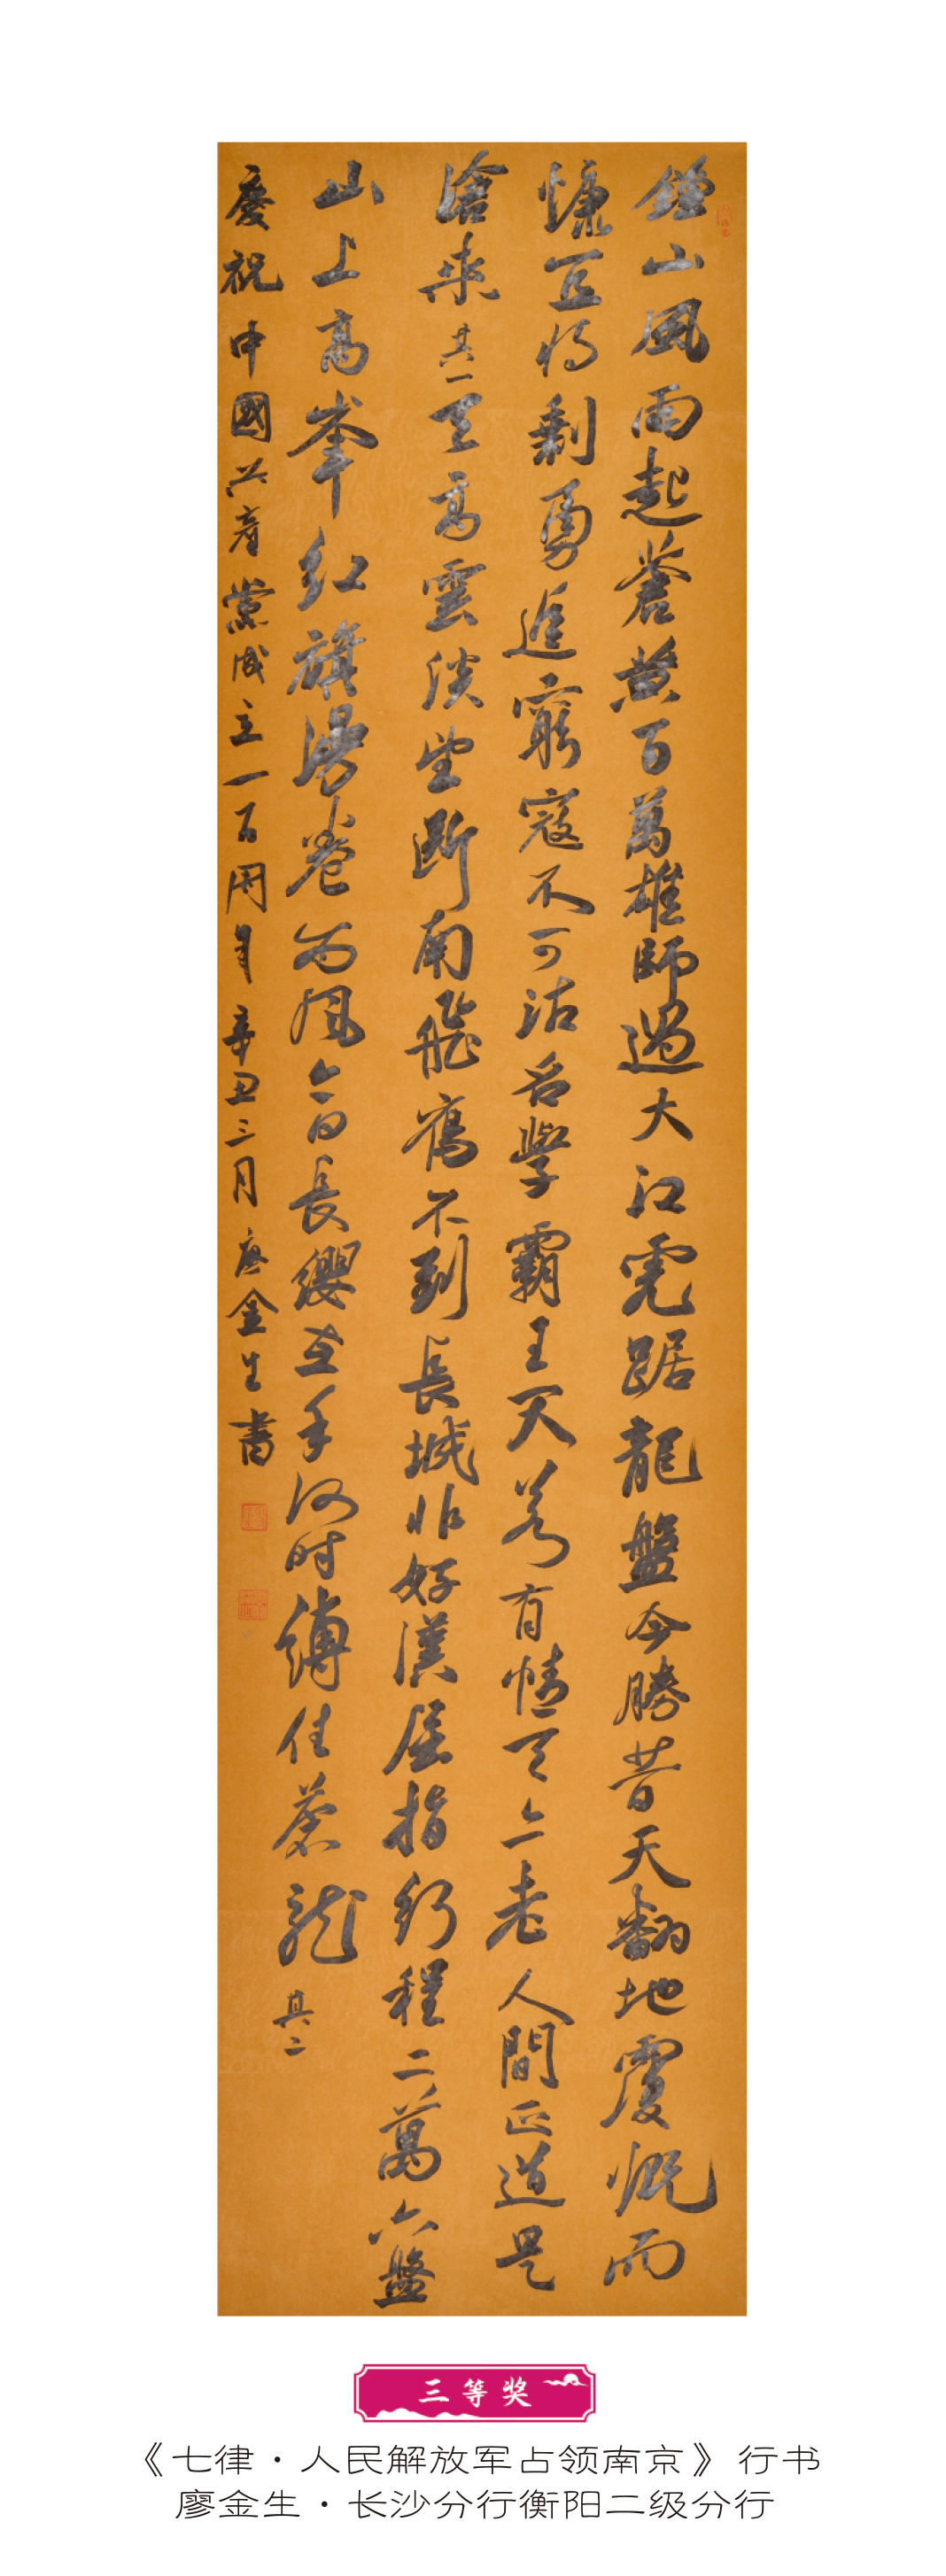 鍾山風雨起蒼黃百萬雄師過大江虎踞龍盤今勝昔天翻地覆慨而
慷宜將剩勇追窮寇不可沽名學霸王天若有情天亦老人間正道是
滄桑其一天高雲淡望斷南飛鴈不到長城非好漢屈指行程二萬六盤
山上高峯紅旗漫卷西風今日長纓在手何时縛住蒼龍其二
慶祝中國共產黨成立一百周年辛丑三月廖金生書
三等奖
《七律·人民解放军占领南京》行书
廖金生·长沙分行衡阳二级分行